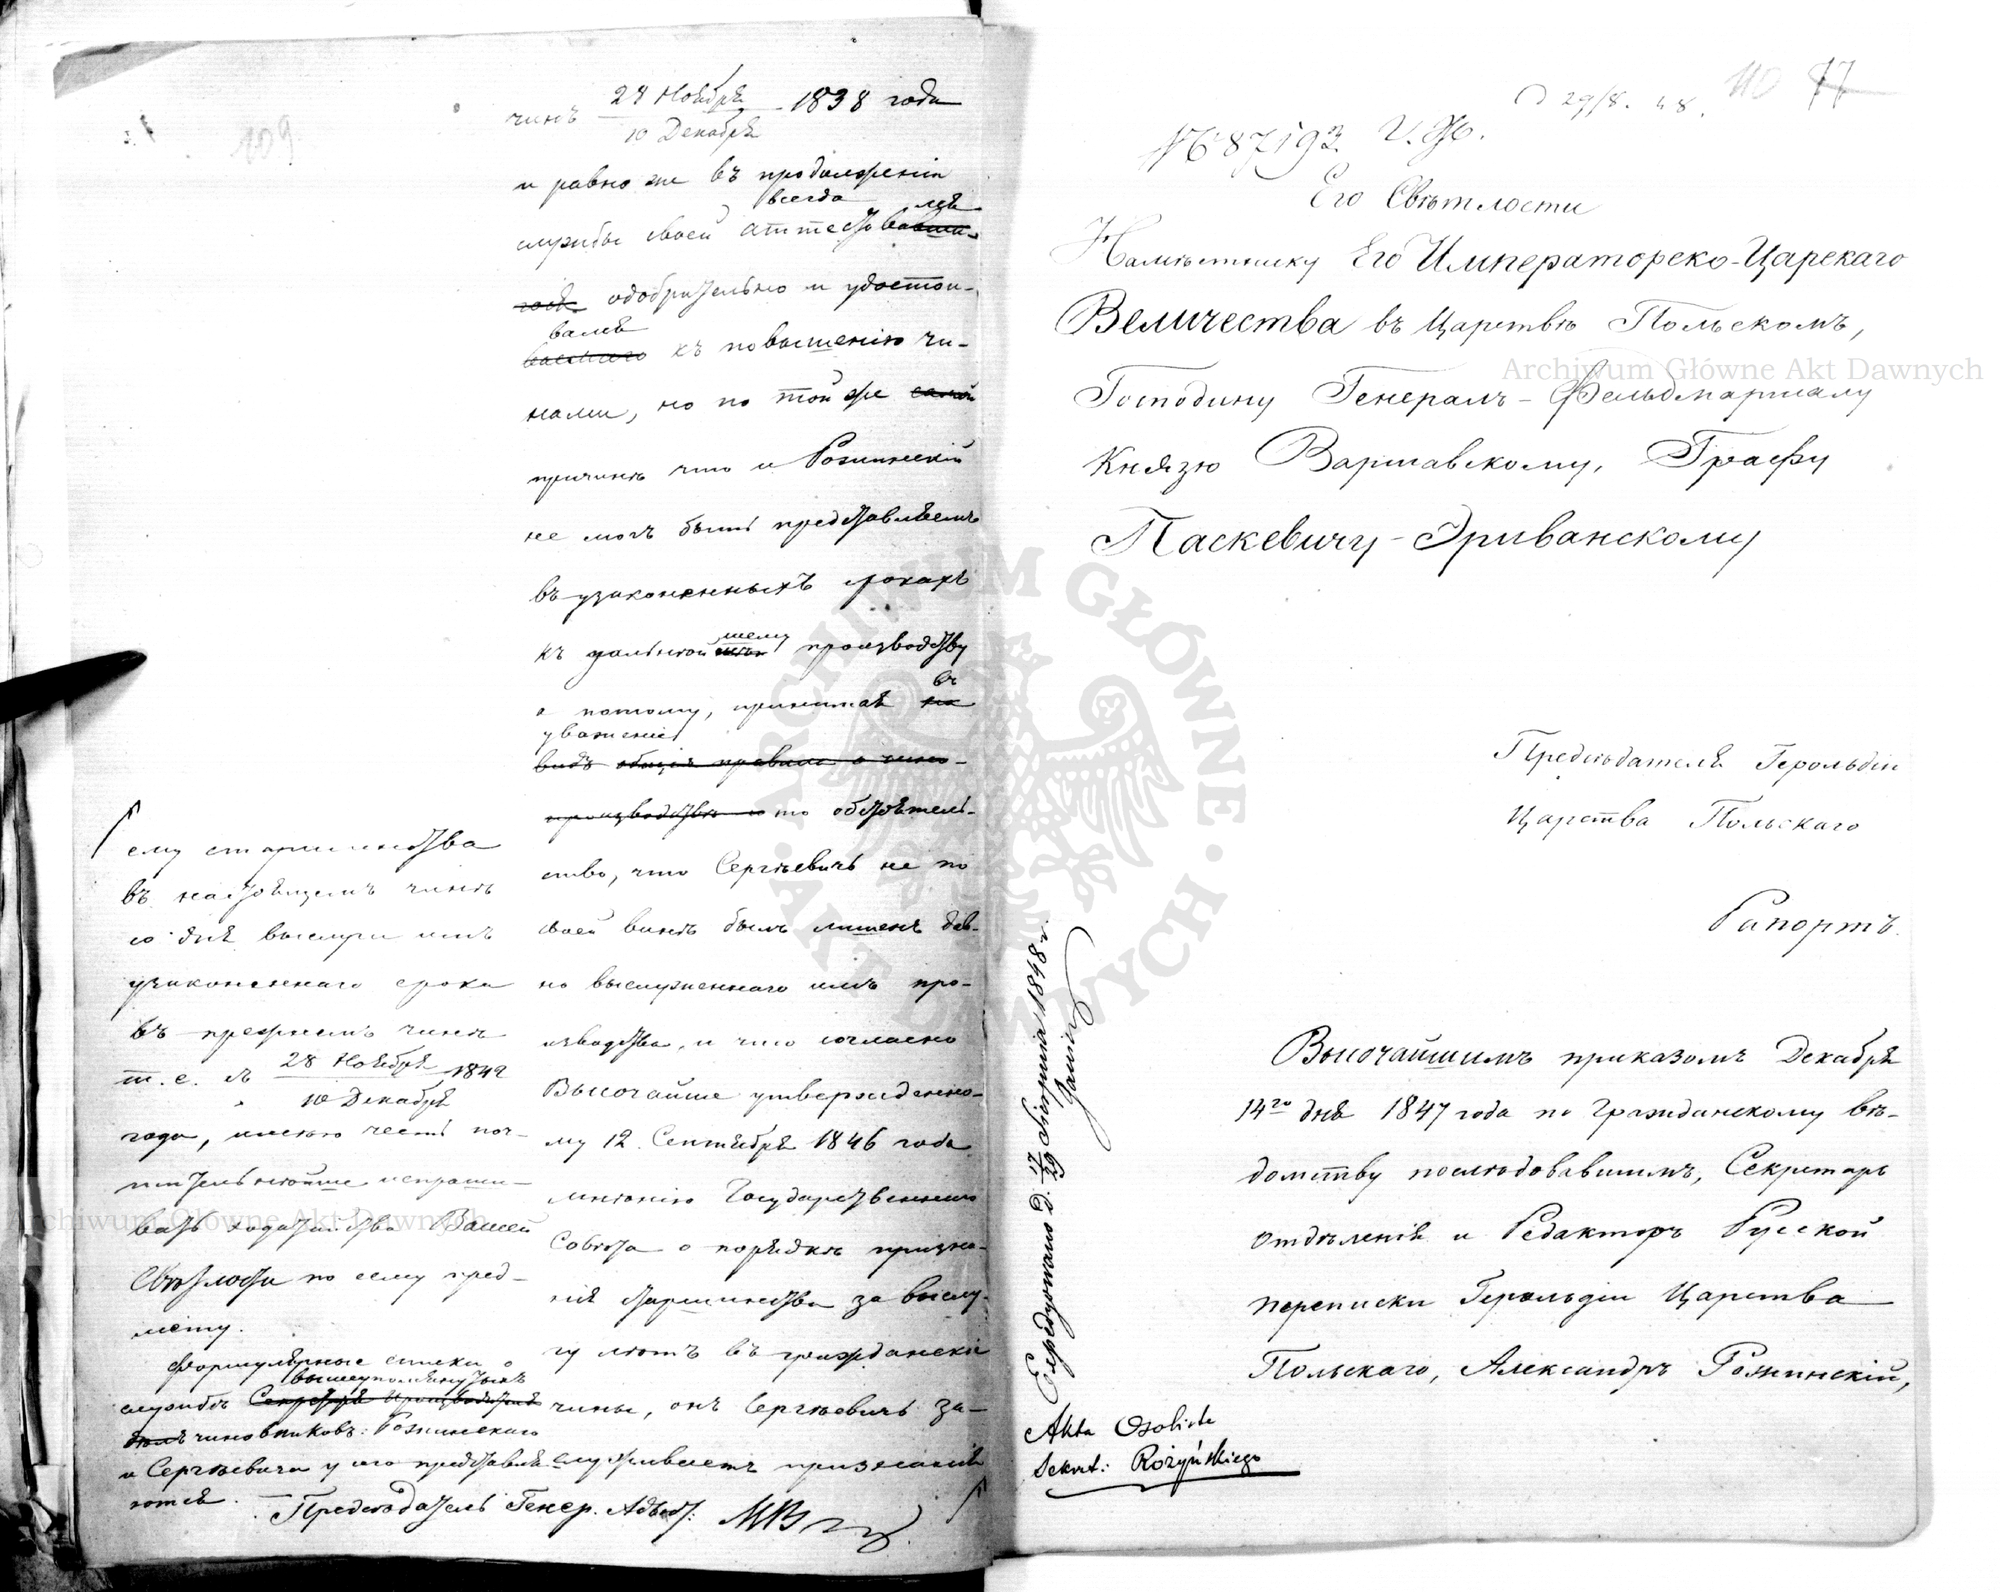 109
чинъ 28 Ноября / 10 Декабря 1838 года
и равно же въ продолженіи
всегда лся
службы своей аттестовавша-
гося одобрительно и удостои-
вался
ваемаго къ повышенію чи-
нами, но по той же самой
причинѣ что и Рожинскій
не могъ быть представляемъ
въ узаконенныхъ срокахъ
къ дальнѣй шему производству
а потому, принимая въ на
уваженіе
видъ общія правила о чино-
производствѣ и то обстоятель-
ство, что Сергѣевичъ не по
своей винѣ былъ лишенъ дав-
но выслуженнаго имъ про-
изводства, и что согласно
Высочайше утвержденно-
му 12 Сентября 1846 года
мнѣнію Государственнаго
Совѣта о порядкѣ призна-
нія старшинства за выслу-
гу лѣтъ въ гражданскіе
чины, онъ Сергѣевичъ за-
служиваетъ признанія
ему старшинства
въ настоящемъ чинѣ
со дня выслуги имъ
узаконеннаго срока
въ прежнемъ чинѣ
т. е. съ 28 Ноября / 10 Декабря 1842
года, имѣю честь поч-
тительнѣйше испраши-
вать ходатайства Вашей
Свѣтлости по сему пред-
мету.
Формулярные списки о
вышеупомянутыхъ
службѣ Секретаря Производителя
дѣлъ чиновниковъ: Рожинскаго
и Сергѣевича у сего представля
ются.
Предсѣдатель Генер. Адъют:
110 77
D 29/8. 48.
№ 87193
Его Свѣтлости
Намѣстнику Его Императорско-Царскаго
Величества въ Царствѣ Польскомъ,
Господину Генералъ-Фельдмаршалу
Князю Варшавскому, Графу
Паскевичу-Эриванскому
Предсѣдателя Герольдіи
Царства Польскаго
Рапортъ.
Высочайшимъ приказомъ Декабря
14го дня 1847 года по Гражданскому вѣ-
домству послѣдовавшимъ, Секретарь
отдѣленія и Редакторъ Русской
переписки Герольдіи Царства
Польскаго, Александръ Рожинскій,
Expedyowano D. 17/29 Sierpnia 1848 r.
Akta Osobiste
Sekret: Rożyńskiego
Archiwum Główne Akt Dawnych
Archiwum Główne Akt Dawnych
ARCHIWUM GŁÓWNE · AKT DAWNYCH ·